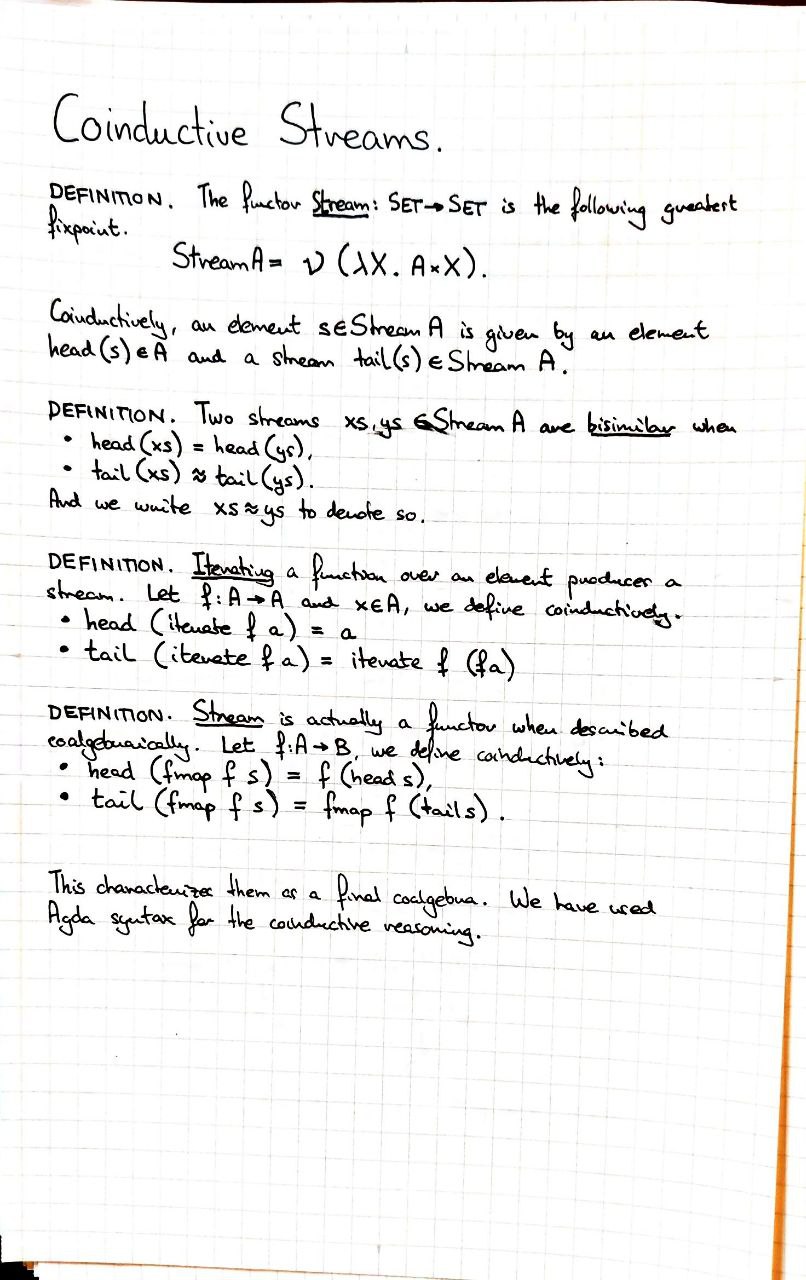 Coinductive Streams.
DEFINITION. The functor Stream: SET→SET is the following greatest
fixpoint.
Stream A = ν (λX. A×X).
Coinductively, an element s∈Stream A is given by an element
head(s)∈A and a stream tail(s)∈Stream A.
DEFINITION. Two streams xs,ys ∈Stream A are bisimilar when
• head(xs) = head(ys),
• tail(xs) ≈ tail(ys).
And we write xs≈ys to denote so.
DEFINITION. Iterating a function over an element produces a
stream. Let f:A→A and x∈A, we define coinductively.
• head (iterate f a) = a
• tail (iterate f a) = iterate f (f a)
DEFINITION. Stream is actually a functor when described
coalgebraically. Let f:A→B, we define coinductively:
• head (fmap f s) = f (head s),
• tail (fmap f s) = fmap f (tail s).
This characterizes them as a final coalgebra. We have used
Agda syntax for the coinductive reasoning.